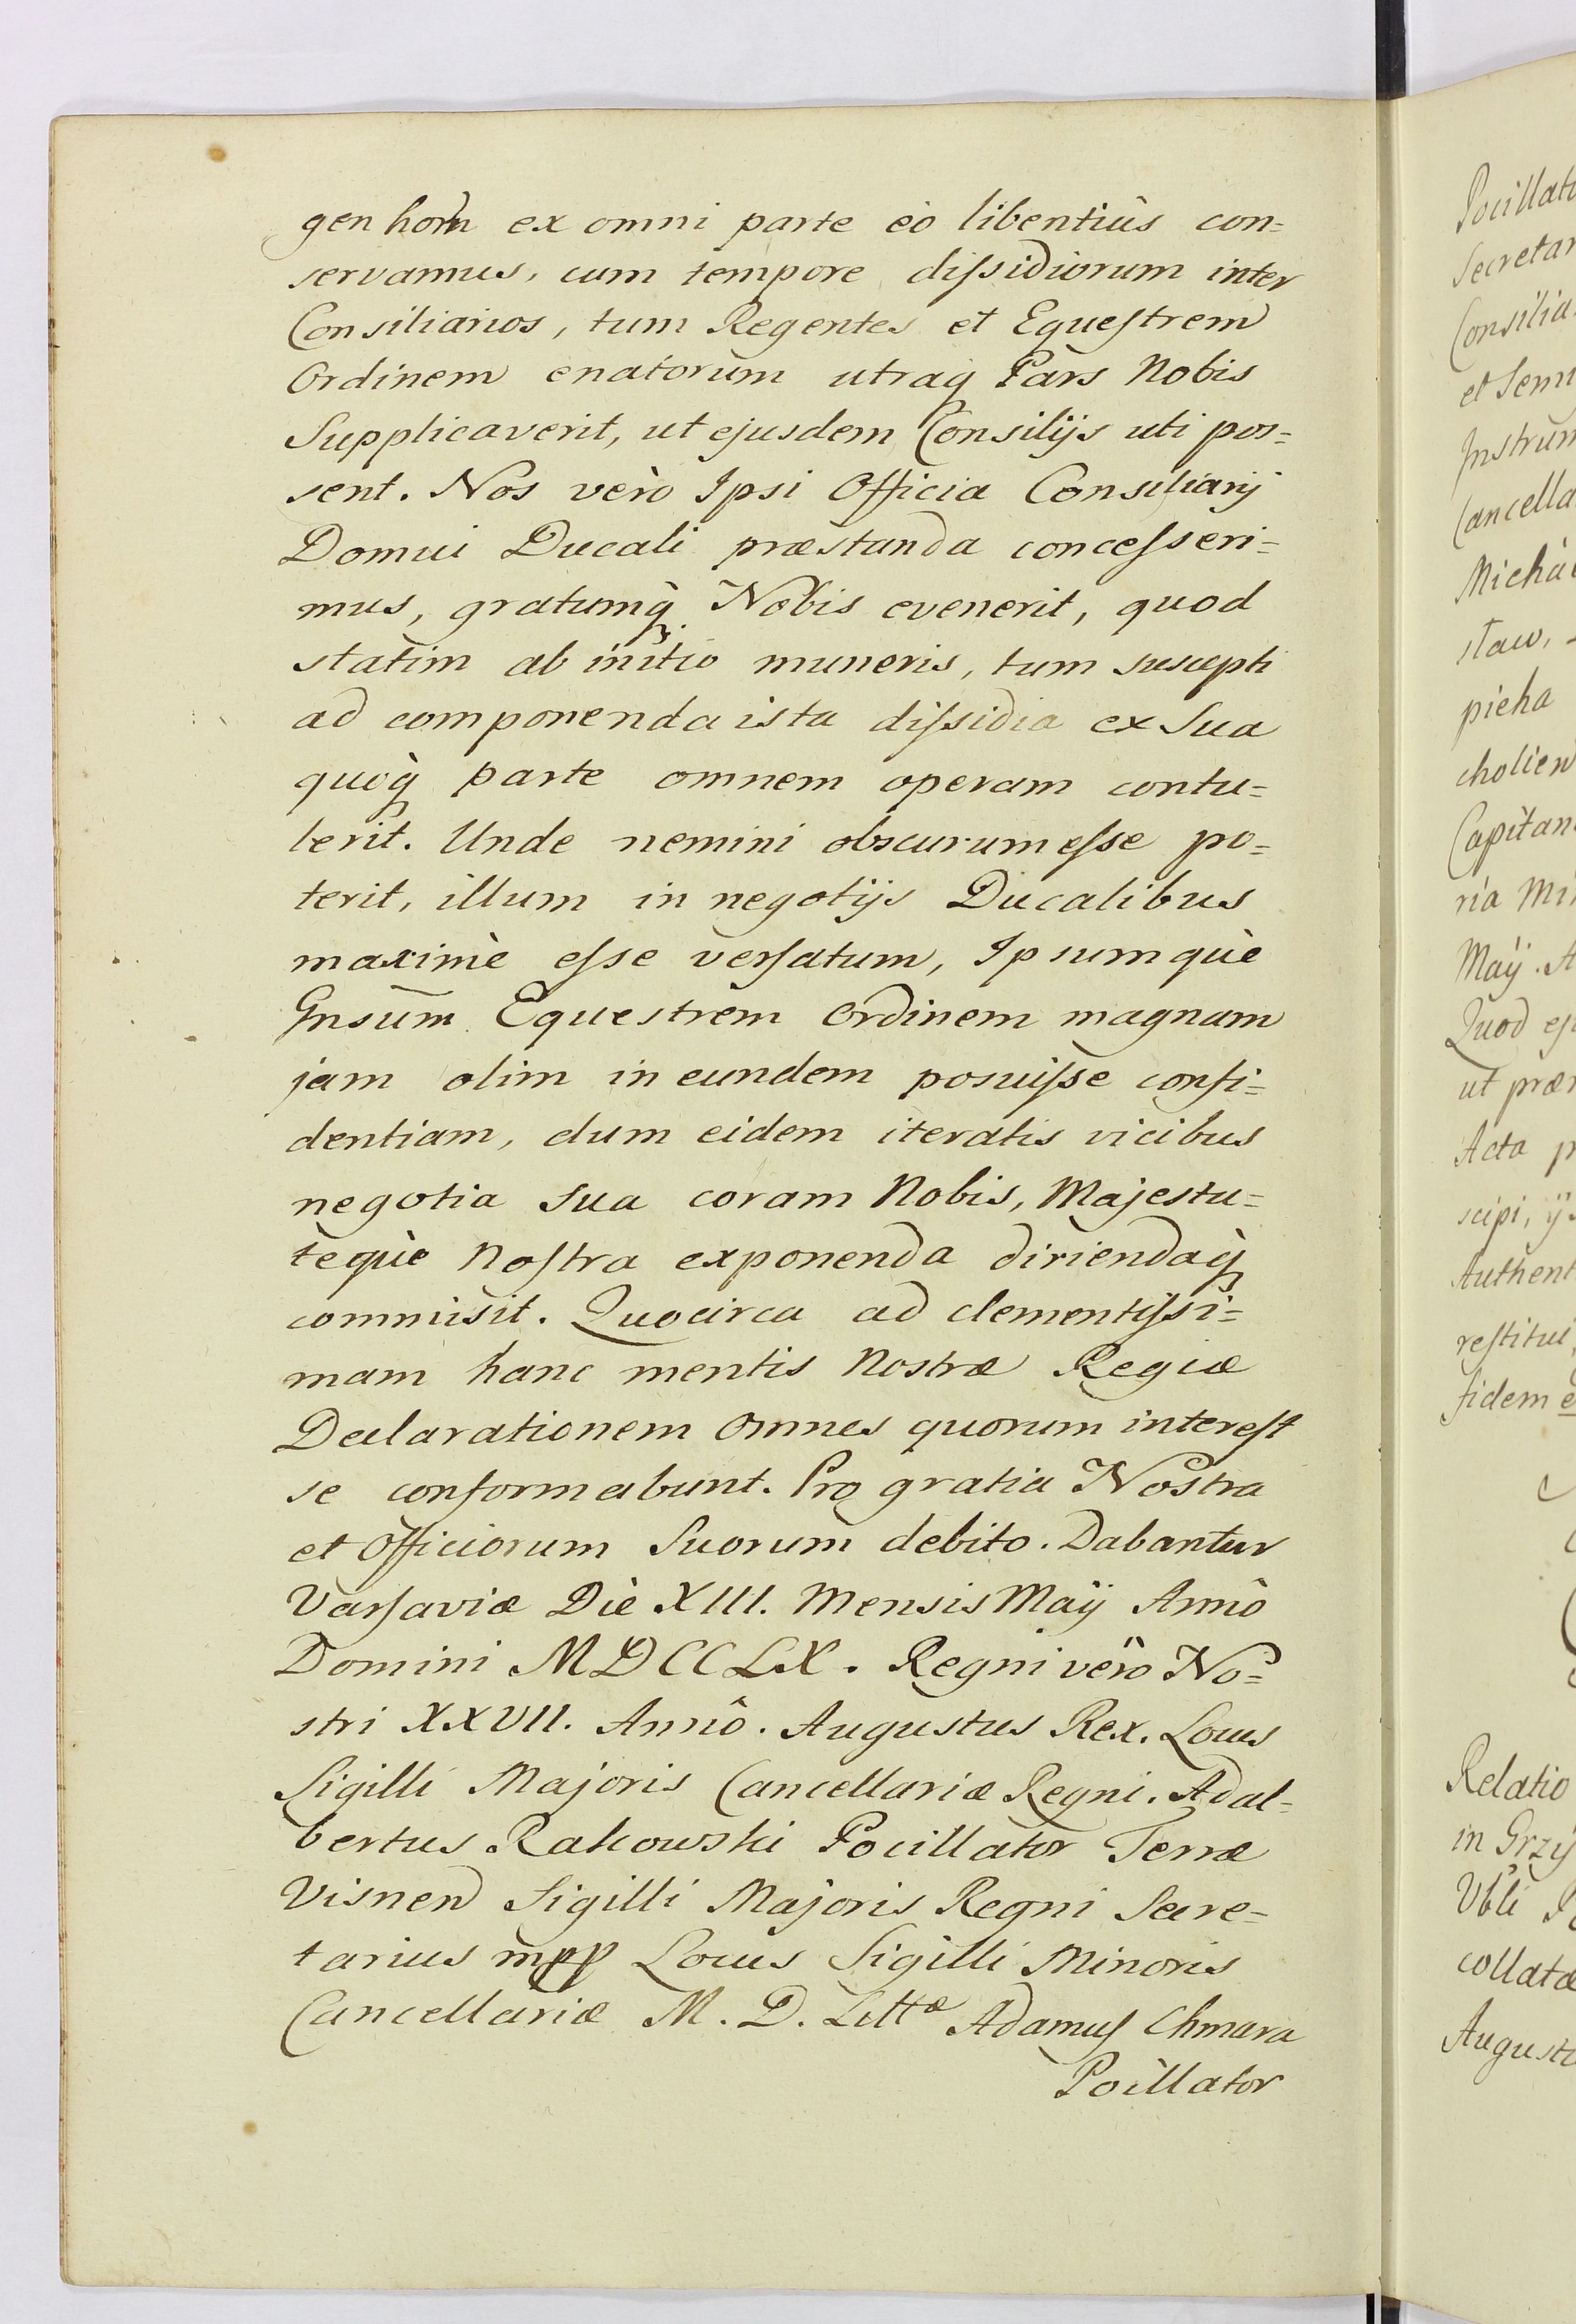 genhorn ex omni parte eò libentiùs con=
servamus, cum tempore dissidiorum inter
Consiliarios, tum Regentes et Equestrem
Ordinem enatorum utraq Pars Nobis
Supplicaverit, ut ejusdem Consilijs uti pos=
sent. Nos verò Ipsi Officia Consiliarij
Domui Ducali præstanda concesseri=
mus, gratumq̀ Nobis evenerit, quod
statim ab initio muneris, tum suscepti
ad componenda ista dissidia ex Sua
quoq̀ parte omnem operam contu=
lerit. Unde nemini obscurum esse po=
terit, illum in negotijs Ducalibus
maximè esse versatum, Ipsumquè
Gnsūm Equestrem Ordinem magnam
jam olim in eundem posuisse confi=
dentiam, dum eidem iteratis vicibus
negotia sua coram Nobis, Majesta=
tequè Nostra exponenda diriendaq̀
commisit. Quocirca ad clementissi=
mam hanc mentis Nostræ Regiæ
Declarationem Omnes quorum interest
se conformabunt. Pro gratia Nostra
et Officiorum Suorum debito. Dabantur
Varsaviæ Diè XIII. Mensis Maÿ Annô
Domini MDCCLX. Regni verò No=
stri XXVII. Annô. Augustus Rex. Locus
Sigilli Majoris Cancellariæ Regni. Adal=
bertus Rakowski Pocillator Terræ
Visnen Sigilli Majoris Regni Secre=
tarius mpp Locus Sigilli Minoris
Cancellariæ M. D. Littæ Adamus Chmara
Poillator
Secretar
Consilia
et Senn
Instrum
Cancella
Michà
staw,
picha
cholien
Capitan
ria Mi
Maÿ. A
Quod ej
ut præ
Acta p
scipi, ij
Authent
restitui,
fidem e
Relatio
in Grzy
Vbli P
collatæ
August